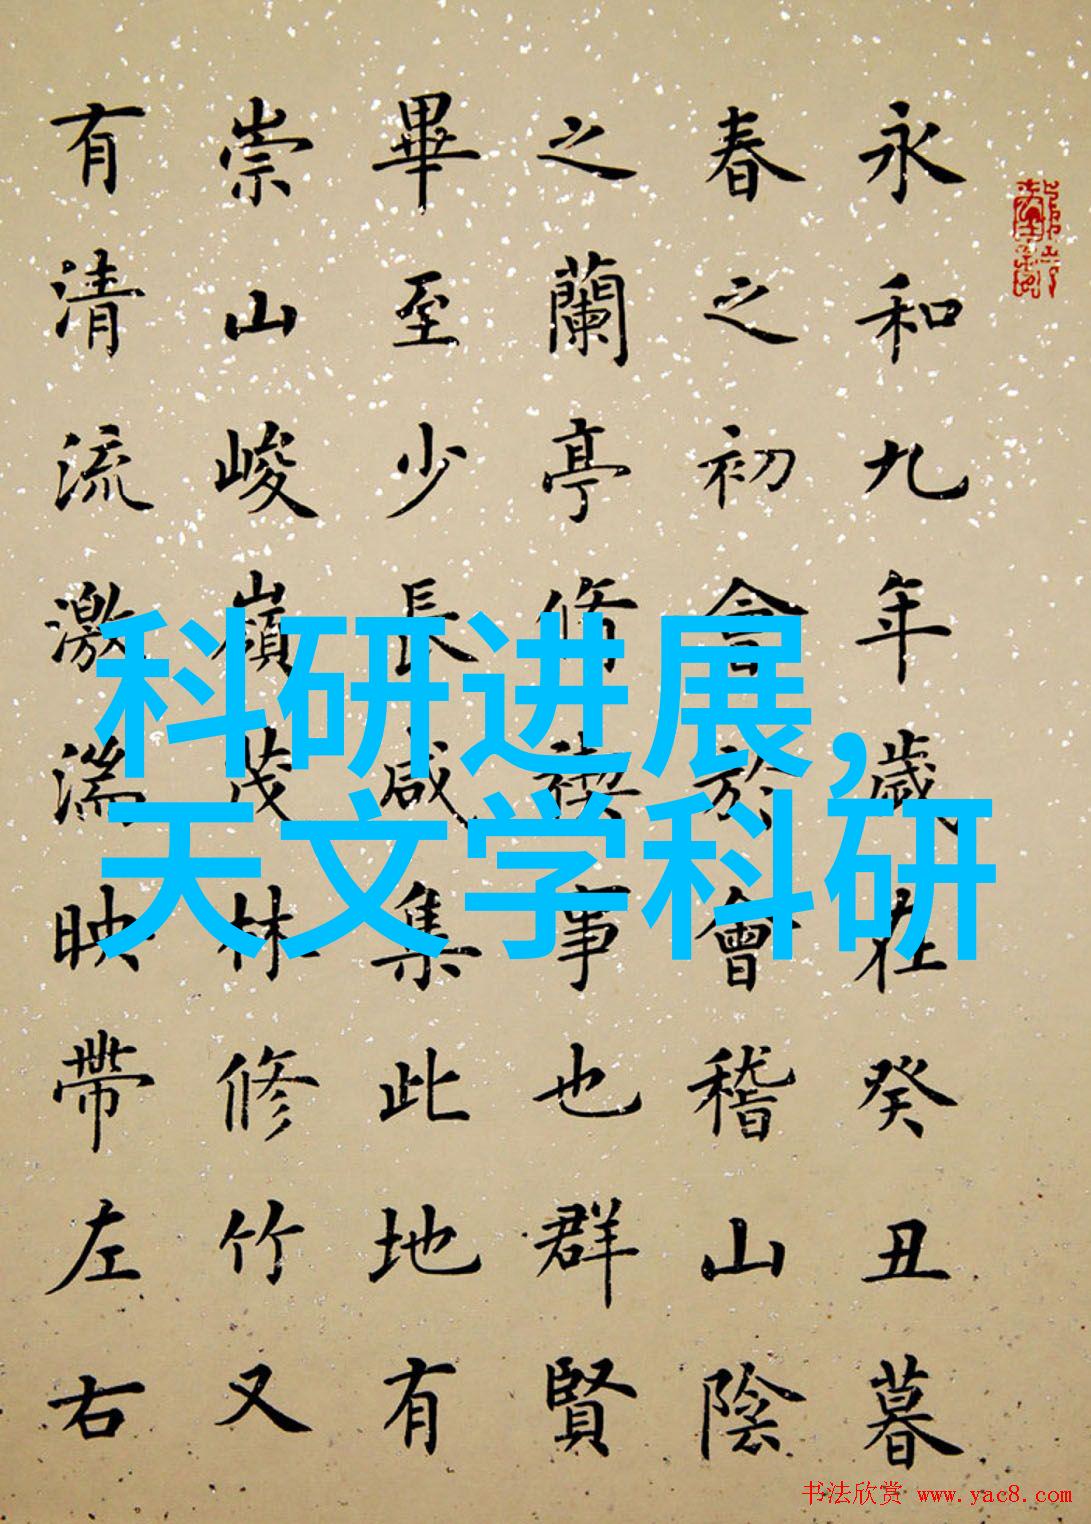 永和九年歲在癸丑暮
春之初會於會稽山陰
之蘭亭脩禊事也群賢
畢至少長咸集此地有
崇山峻嶺茂林修竹又
有清流激湍映帶左右
科研进展,
天文学科研
书法欣赏 www.yac8.com